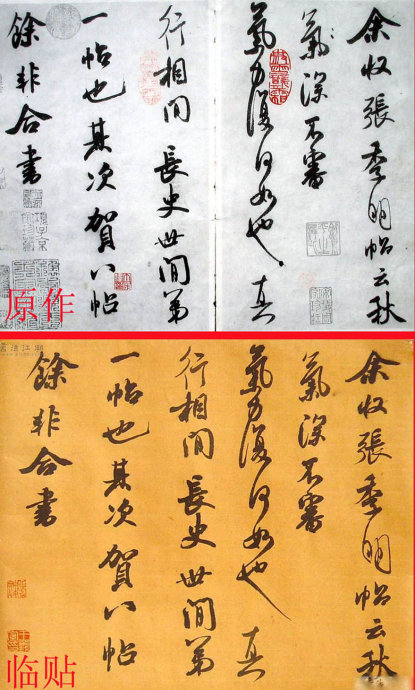 余收張季明帖云秋
氣深不審
氣力復何如也真
行相間長史世間第
一帖也其次賀八帖
餘非合書
原作
余收張季明帖云秋
氣深不審
氣力復何如也真
行相間長史世間第
一帖也其次賀八帖
餘非合書
临贴